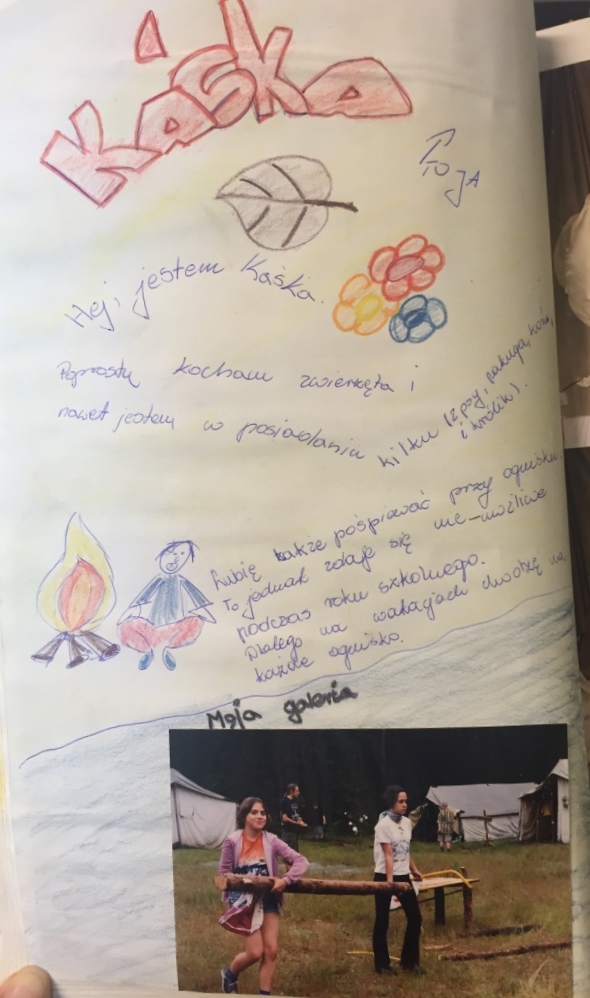 Kaśka
To JA
Hej, jestem Kaśka.
Poprostu kocham zwierzęta i
nawet jestem w posiadaniu kilku (2 psy, papuga, koń,
i królik).
Lubię także pośpiewać przy ognisku.
To jednak zdaje się nie-możliwe
podczas roku szkolnego.
Dlatego na wakacjach chodzę na
każde ognisko.
Moja galeria